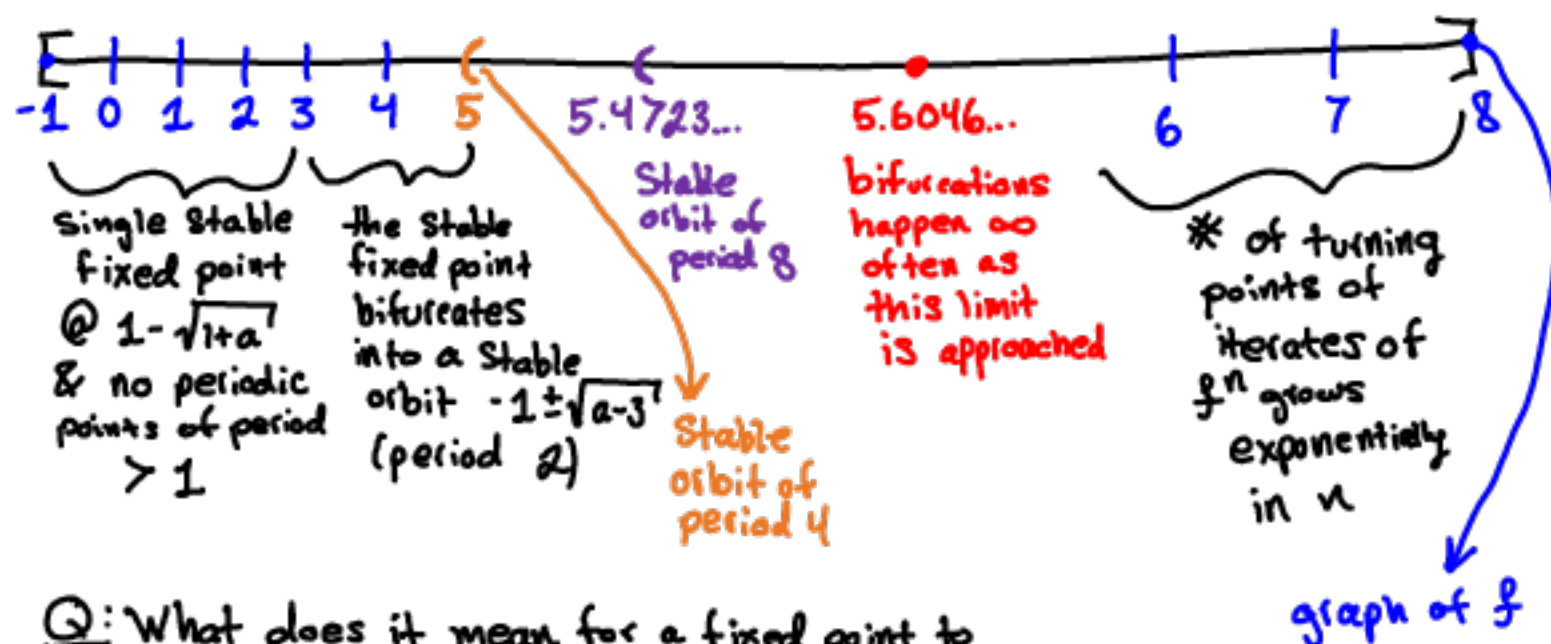 -1 0 1 2 3 4 5 5.4723... 5.6046... 6 7 8
Single Stable
fixed point
@ 1-√1+a
& no periodic
points of period
> 1
the Stable
fixed point
bifurcates
into a Stable
orbit -1±√a-3
(period 2)
Stable
orbit of
period 4
Stable
orbit of
period 8
bifurcations
happen ∞
often as
this limit
is approached
* of turning
points of
iterates of
fⁿ grows
exponentially
in n
graph of f
Q: What does it mean for a fixed point to